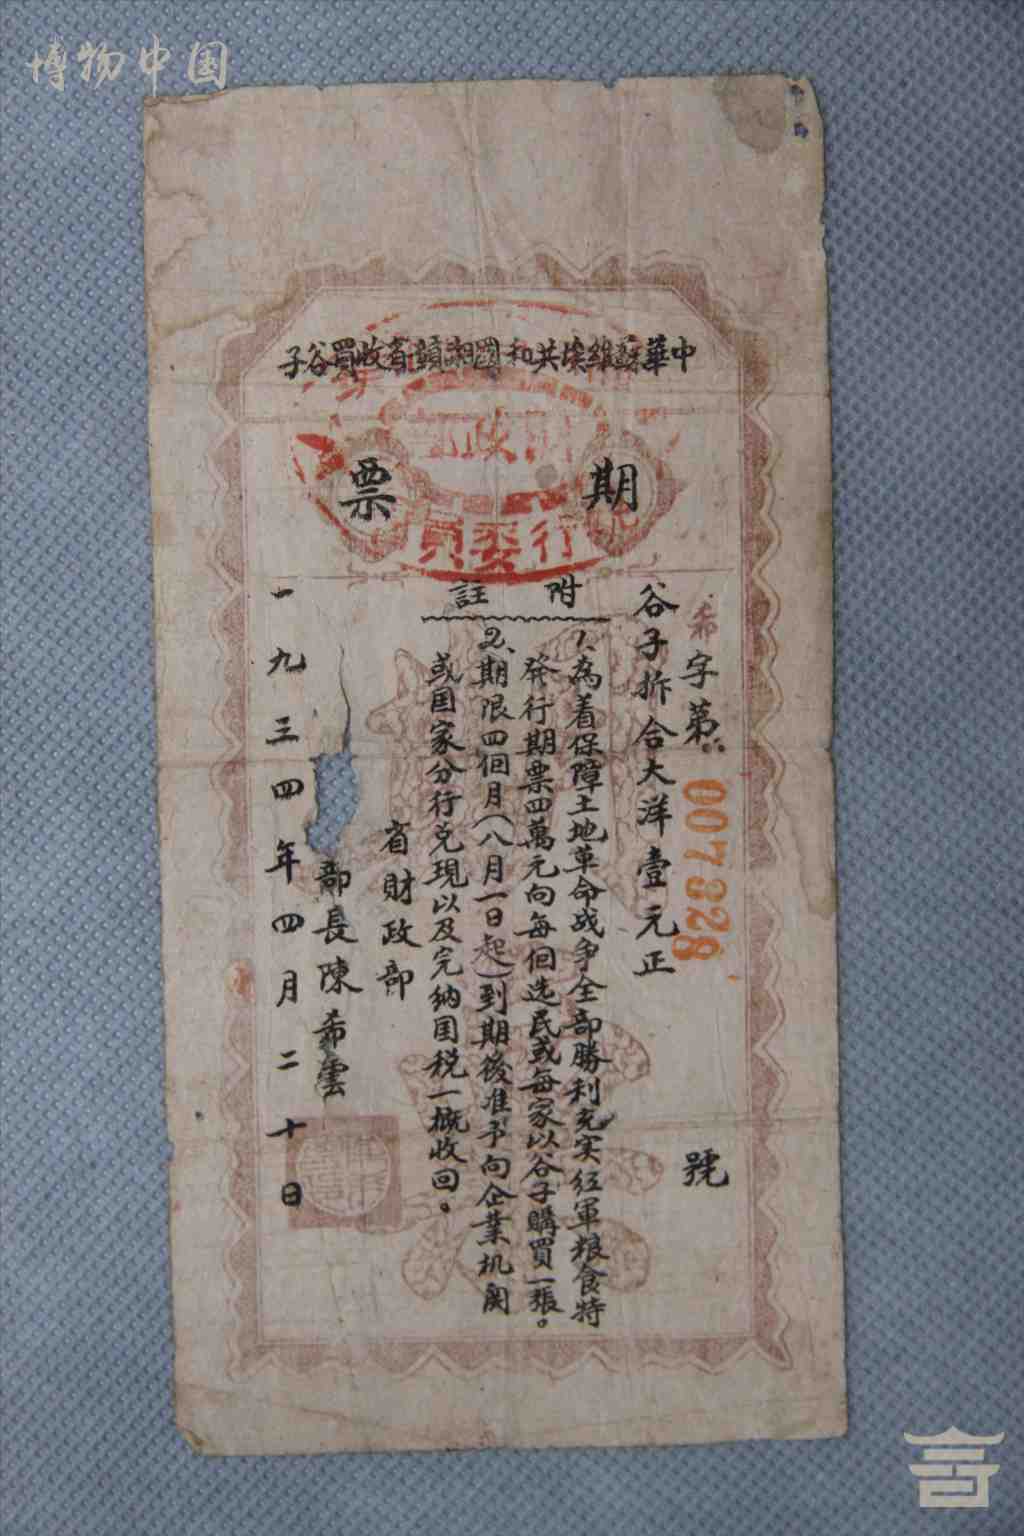 博物中国
中華蘇維埃共和國湘贛省收買谷子
期票
財政
行委員
希字第007328號
谷子折合大洋壹元正
附註
1、為着保障土地革命战争全部勝利充实红軍粮食特
発行期票四萬元向每個选民或每家以谷子購買一張。
2、期限四個月(八月一日起)到期後准予向企業机関
或国家分行兑現以及完納国税一概收回。
省財政部
部長陳希雲
一九三四年四月二十日